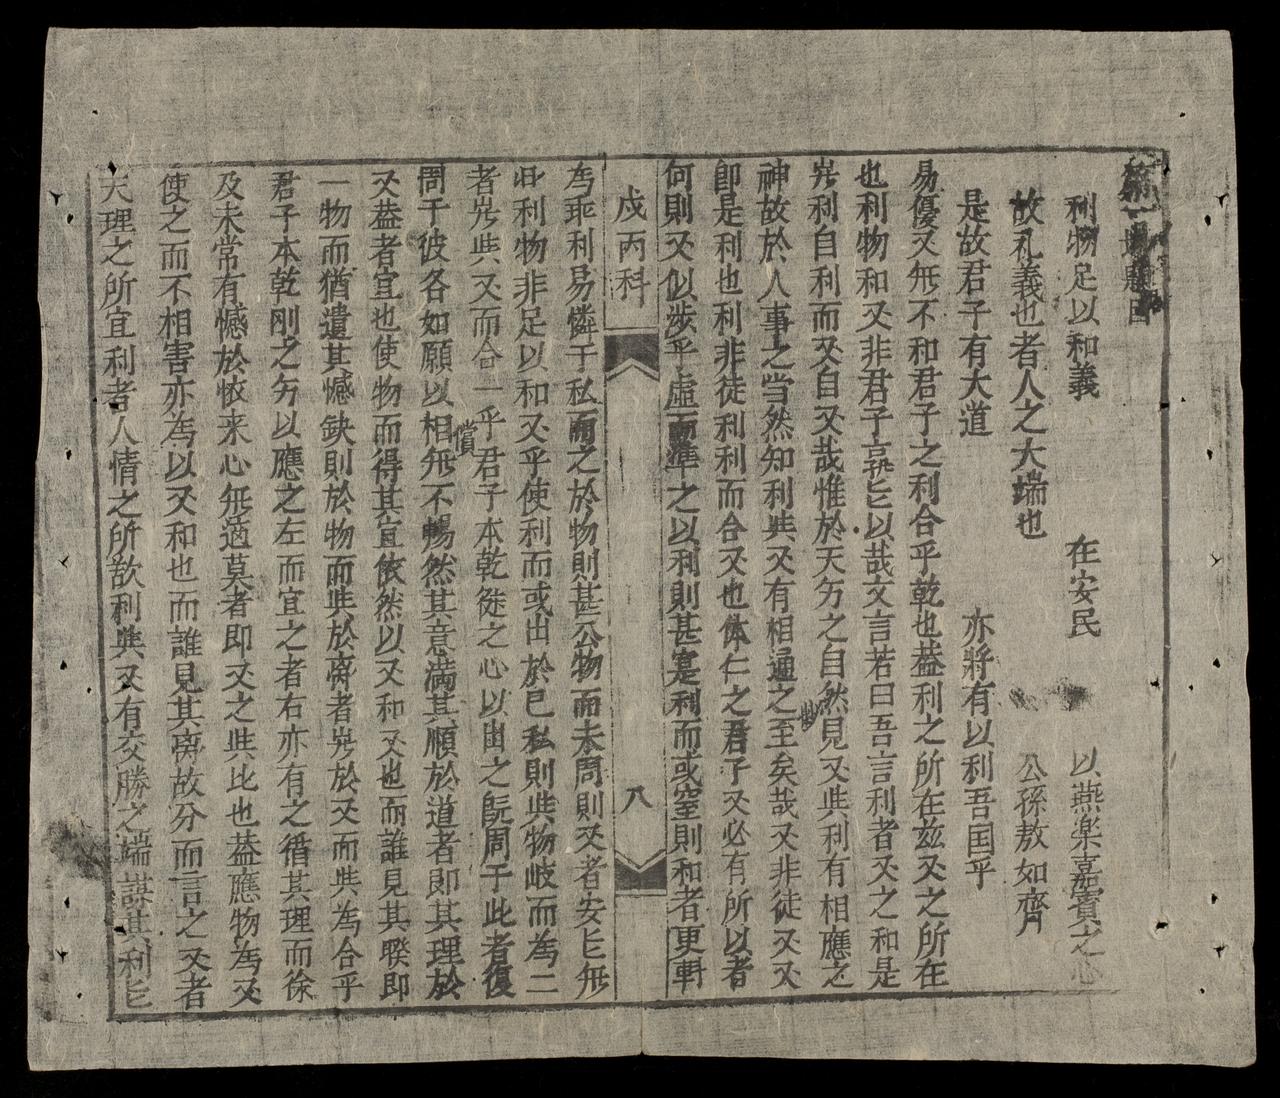 利物足以和義　在安民　以燕楽嘉賓之心
故礼義也者人之大端也　公孫敖如齊
是故君子有大道　亦將有以利吾囯乎
易優又無不和君子之利合乎乾也盖利之所在玆又之所在
也利物和又非君子孰以哉文言若曰吾言利者又之和是
利自利而又自又哉惟於天之自然見又利有相應之妙
神故於人事之当然知利又有相通之至矣哉又非徒又又
即是利也利非徒利利而合又也体仁之君子又必有所以者
何則又似涉乎虛而準之以利則甚寔利而或窒則和者更
戊丙科
八
為乖利易憐于私而之於物則甚公物而未周則又者安無
此利物非足以和又乎使利而或出於已私則物岐而為二
者又而合一乎君子本乾之心以出之既周于此者復
周于彼各如願以相償無不暢然其意满其順於道者即其理於
又盖者宜也使物而得其宜依然以又和又也而誰見其睽即
一物而猶遺其憾缺則於物而於者於又而為合乎
君子本乾刚之以應之左而宜之者右亦有之循其理而徐
及未常有憾於依来心無適莫者即又之比也盖應物為又
使之而不相害亦為以又和也而誰見其故分而言之又者
天理之所宜利者人情之所利又有交勝之端講其利